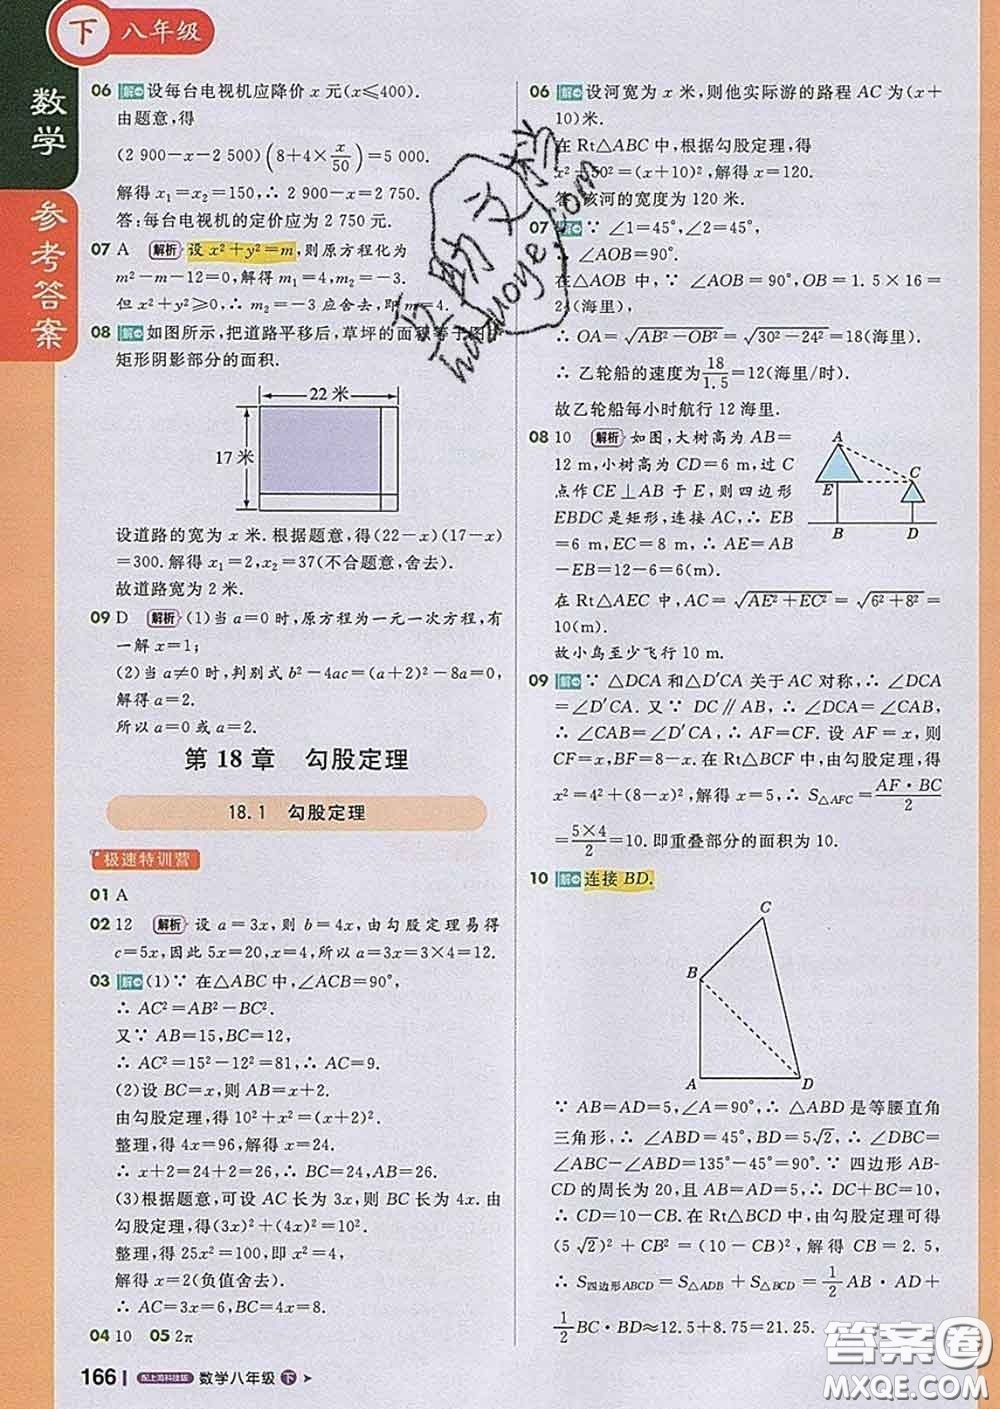 下 八年级
数学
参考答案
06 解 设每台电视机应降价 x 元(x≤400).
由题意,得
(2 900－x－2 500)(8＋4×x/50)＝5 000.
解得 x₁＝x₂＝150,∴ 2 900－x＝2 750.
答:每台电视机的定价应为 2 750 元.
07 A 解析 设 x²＋y²＝m,则原方程化为
m²－m－12＝0,解得 m₁＝4,m₂＝－3.
但 x²＋y²≥0,∴ m₂＝－3 应舍去,即 m＝4.
08 解 如图所示,把道路平移后,草坪的面积等于图中
矩形阴影部分的面积.
22 米
17 米
设道路的宽为 x 米.根据题意,得(22－x)(17－x)
＝300.解得 x₁＝2,x₂＝37(不合题意,舍去).
故道路宽为 2 米.
09 D 解析 (1)当 a＝0 时,原方程为一元一次方程,有
一解 x＝1;
(2)当 a≠0 时,判别式 b²－4ac＝(a＋2)²－8a＝0,
解得 a＝2.
所以 a＝0 或 a＝2.
第 18 章 勾股定理
18.1 勾股定理
极速特训营
01 A
02 12 解析 设 a＝3x,则 b＝4x,由勾股定理易得
c＝5x,因此 5x＝20,x＝4,所以 a＝3x＝3×4＝12.
03 解 (1)∵ 在△ABC 中,∠ACB＝90°,
∴ AC²＝AB²－BC².
又∵ AB＝15,BC＝12,
∴ AC²＝15²－12²＝81,∴ AC＝9.
(2)设 BC＝x,则 AB＝x＋2.
由勾股定理,得 10²＋x²＝(x＋2)².
整理,得 4x＝96,解得 x＝24.
∴ x＋2＝24＋2＝26,∴ BC＝24,AB＝26.
(3)根据题意,可设 AC 长为 3x,则 BC 长为 4x.由
勾股定理,得(3x)²＋(4x)²＝10².
整理,得 25x²＝100,即 x²＝4,
解得 x＝2(负值舍去).
∴ AC＝3x＝6,BC＝4x＝8.
04 10 05 2π
166 配上海科技版 数学八年级 下
06 解 设河宽为 x 米,则他实际游的路程 AC 为(x＋
10)米.
在 Rt△ABC 中,根据勾股定理,得
x²＋50²＝(x＋10)²,解得 x＝120.
答:该河的宽度为 120 米.
07 解 ∵ ∠1＝45°,∠2＝45°,
∴ ∠AOB＝90°.
在△AOB 中,∵ ∠AOB＝90°,OB＝1.5×16＝
24(海里),
∴ OA＝√(AB²－OB²)＝√(30²－24²)＝18(海里).
∴ 乙轮船的速度为18/1.5＝12(海里/时).
故乙轮船每小时航行 12 海里.
08 10 解析 如图,大树高为 AB＝
12 m,小树高为 CD＝6 m,过 C
点作 CE⊥AB 于 E,则四边形
EBDC 是矩形,连接 AC,∴ EB
＝6 m,EC＝8 m,∴ AE＝AB
－EB＝12－6＝6(m).
A
E
C
B
D
在 Rt△AEC 中,AC＝√(AE²＋EC²)＝√(6²＋8²)＝
10(m).
故小鸟至少飞行 10 m.
09 解 ∵ △DCA 和△D′CA 关于 AC 对称,∴ ∠DCA
＝∠D′CA. 又∵ DC∥AB,∴ ∠DCA＝∠CAB,
∴ ∠CAB＝∠D′CA,∴ AF＝CF. 设 AF＝x,则
CF＝x,BF＝8－x. 在 Rt△BCF 中,由勾股定理,得
x²＝4²＋(8－x)²,解得 x＝5,∴ S△AFC＝AF·BC/2
＝5×4/2＝10. 即重叠部分的面积为 10.
10 解 连接 BD.
C
B
A
D
∵ AB＝AD＝5,∠A＝90°,∴ △ABD 是等腰直角
三角形,∴ ∠ABD＝45°,BD＝5√2,∴ ∠DBC＝
∠ABC－∠ABD＝135°－45°＝90°.∵ 四边形 AB-
CD 的周长为 20,且 AB＝AD＝5,∴ DC＋BC＝10,
∴ CD＝10－CB. 在 Rt△BCD 中,由勾股定理可得
(5√2)²＋CB²＝(10－CB)²,解得 CB＝2.5,
∴ S四边形ABCD＝S△ADB＋S△BCD＝1/2 AB·AD＋
1/2 BC·BD≈12.5＋8.75＝21.25.
答案圈
MXQE.COM